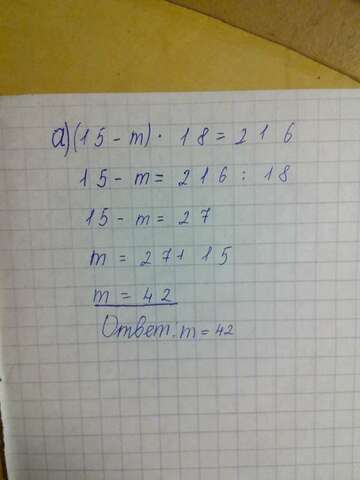 а) (15 - m) · 18 = 216
15 - m = 216 : 18
15 - m = 27
m = 27 + 15
m = 42
Ответ: m = 42